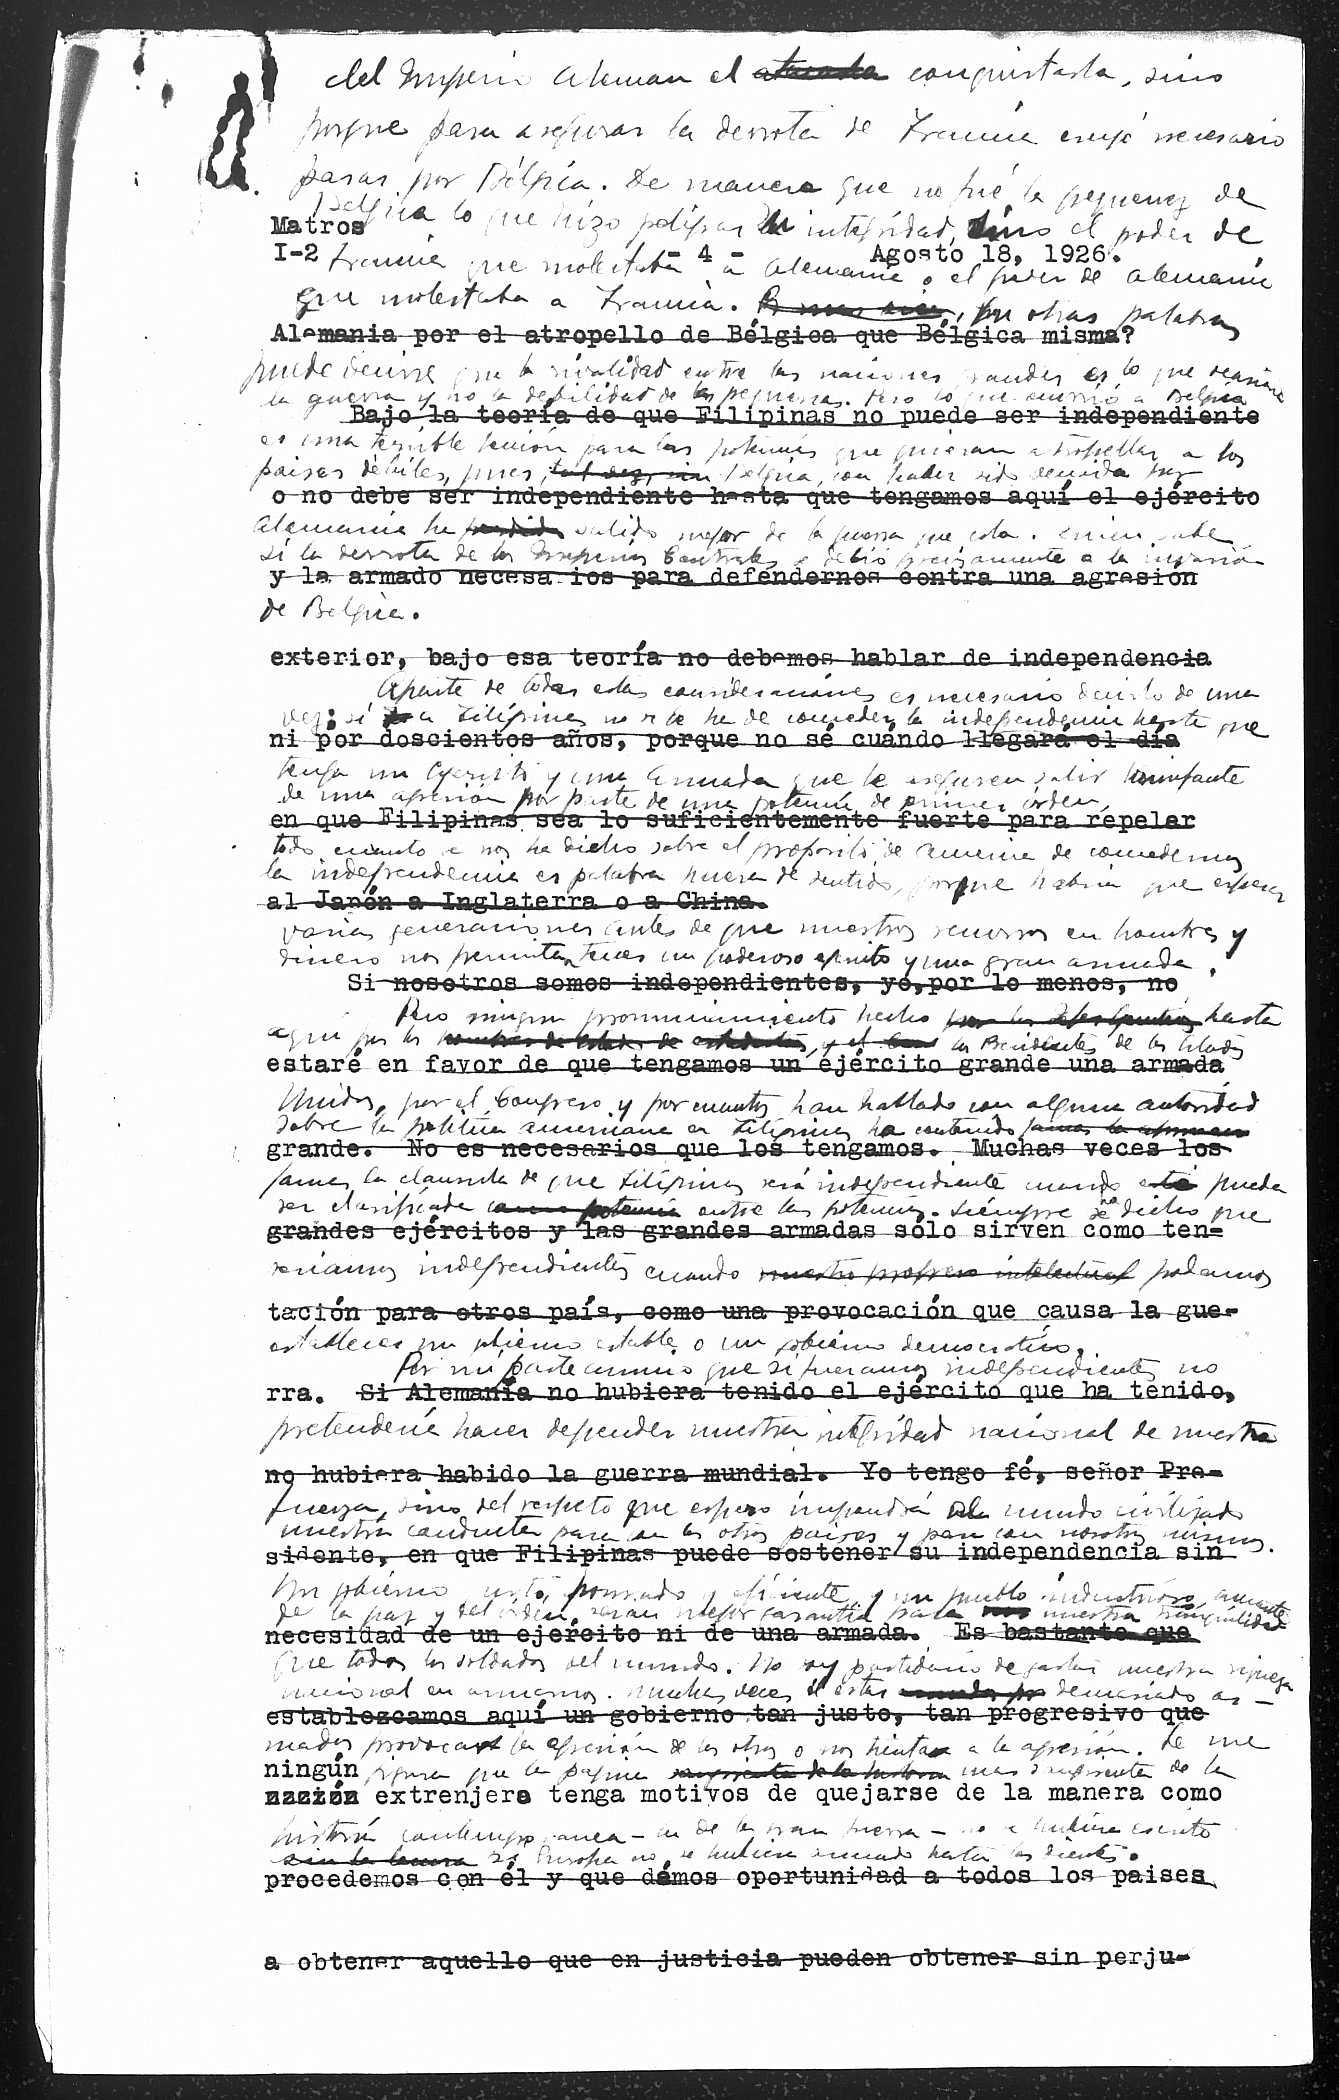 del Imperio Aleman el atacarla conquistarla, sino
porque para asegurar la derrota de Francia creyó necesario
pasar por Bélgica. De manera que no fué la pequenez de
Belgica lo que hizo peligrar su integridad, sino el poder de
Matros
I-2 - 4 - Agosto 18, 1926.
Francia que molestaba a Alemania o el poder de Alemania
que molestaba a Francia. en otras palabras
Alemania por el atropello de Bélgica que Bélgica misma?
puede decirse que la rivalidad entre las naciones grandes es lo que ocasiona
la guerra y no la debilidad de las pequeñas. Pero lo que ocurrió a Belgica
Bajo la teoría de que Filipinas no puede ser independiente
es una terrible leccion para las potencias que quieran atropellar a los
paises débiles, pues, tal vez, sin Belgica, con haber sido vencida por
o no debe ser independiente hasta que tengamos aquí el ejército
Alemania ha perdido salido mejor de la guerra que esta. Quien sabe
si la derrota de los Imperios Centrales se debió precisamente a la invasión
y la armado necesarios para defendernos contra una agresión
de Belgica.
exterior, bajo esa teoría no debemos hablar de independencia
Aparte de todas estas consideraciones es necesario decirlo de una
vez: si a Filipinas no se le ha de conceder la independencia hasta que
ni por doscientos años, porque no sé cuándo llegará el día
tenga un ejercito y una Armada que le aseguren salir triunfante
de una agresión por parte de una potencia de primer órden,
en que Filipinas sea lo suficientemente fuerte para repeler
todo cuanto se nos ha dicho sobre el proposito de America de concedernos
la independencia es palabra huera de sentido, porque habria que esperar
al Japón a Inglaterra o a China.
varias generaciones antes de que nuestros recursos en hombres y
dinero nos permitan tener un poderoso ejercito y una gran armada.
Si nosotros somos independientes, yo,por lo menos, no
Pero ningun pronunciamiento hecho hasta
aquí por los hombres de estado de estadistas, y el los Presidentes de los Estados
estaré en favor de que tengamos un ejército grande una armada
Unidos, por el Congreso y por cuantos han hablado con alguna autoridad
sobre la politica americana en Filipinas ha contenido
grande. No es necesarios que los tengamos. Muchas veces los
jamas la clausula de que Filipinas será independiente cuando esté pueda
ser clasificada como potencia entre las potencias. Siempre se ha dicho que
grandes ejércitos y las grandes armadas sólo sirven como ten-
seriamos independientes cuando nuestro progreso intelectual podamos
tación para otros país, como una provocación que causa la gue-
establecer un gobierno estable o un gobierno democratico.
Por mi parte anuncio que si fueramos independientes no
rra. Si Alemania no hubiera tenido el ejército que ha tenido,
pretenderia hacer depender nuestra integridad nacional de nuestra
no hubiera habido la guerra mundial. Yo tengo fé, señor Pre-
fuerza, sino del respeto que espero impondrá al mundo civilizado
nuestra conducta para con los otros paises y para con nosotros mismos.
sidente, en que Filipinas puede sostener su independencia sin
Un gobierno justo, honrado y eficiente, y un pueblo industrioso, amante
de la paz y del orden, serian mejor garantia para nuestra tranquilidad
necesidad de un ejercito ni de una armada. Es bastante que
que todos los soldados del mundo. No soy partidario de gastar nuestra riqueza
nacional en armarnos. Muchas veces el estar demasiado ar-
establezcamos aquí un gobierno tan justo, tan progresivo que
mados provoca la agresión de los otros o nos tienta a la agresión. Se me
ningún figura que la pagina sangrienta de la historia mas sangrienta de la
nación extrenjera tenga motivos de quejarse de la manera como
historia contemporanea - la de la gran guerra - no se hubiera escrito
si Europa no se hubiera armado hasta los dientes.
procedemos con él y que démos oportunidad a todos los paises
a obtener aquello que en justicia pueden obtener sin perju-